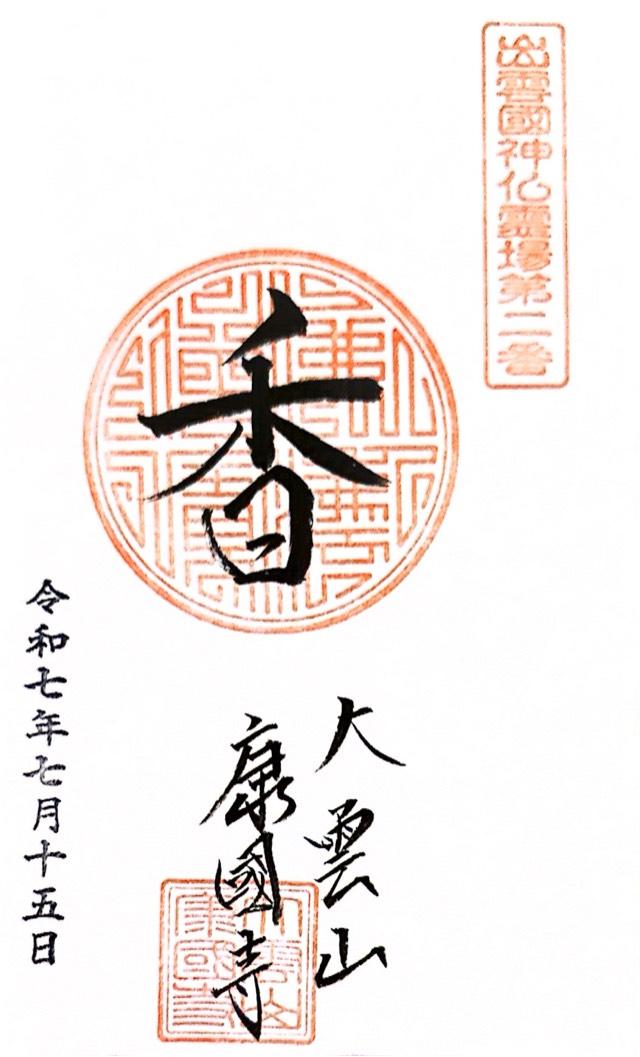 出雲國神仏霊場第二番
香
大雲山
康國寺
令和七年七月十五日